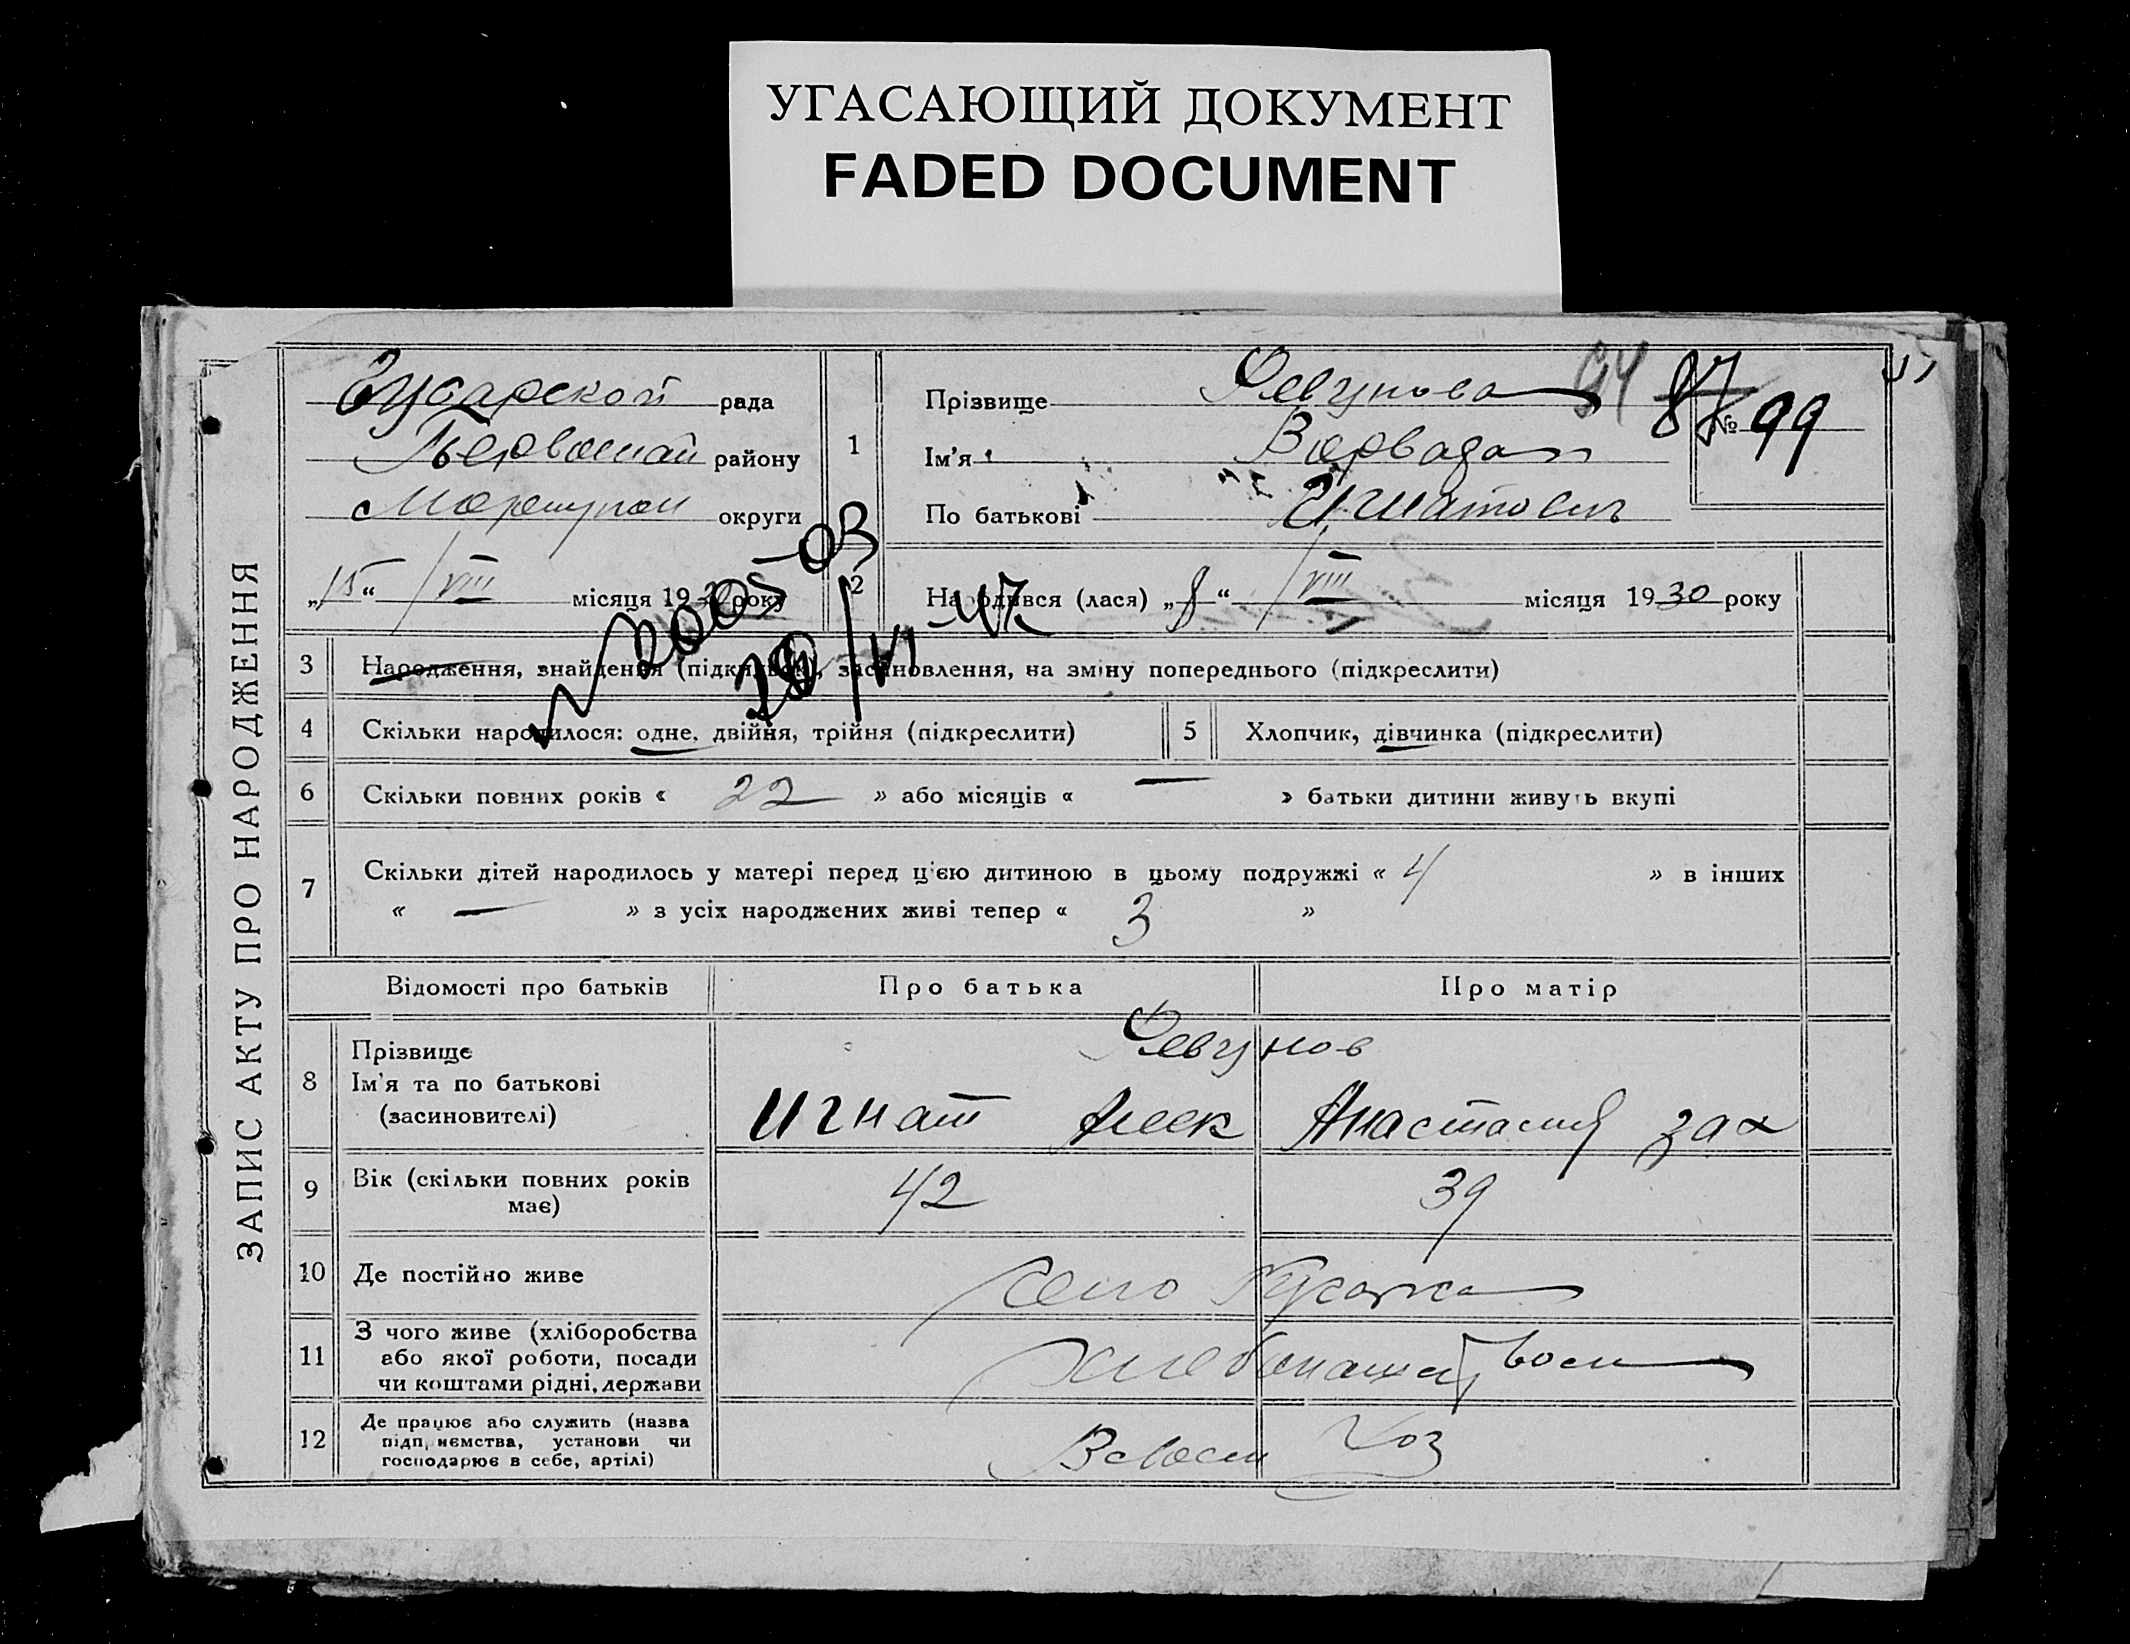 УГАСАЮЩИЙ ДОКУМЕНТ
FADED DOCUMENT
ЗАПИС АКТУ ПРО НАРОДЖЕННЯ
Гусарской рада
району
округи
„15“ VIII місяця 19 року
1
Прізвище Ревунова
Ім'я Варвара
По батькові Игнатовн
94 87 № 99
2
Народився (лася) „8“ VIII місяця 1930 року
№ 2005-03
28/VI-47
3 Народження, знайдення (підкидьок), засиновлення, на зміну попереднього (підкреслити)
4 Скільки народилося: одне, двійня, трійня (підкреслити)
5 Хлопчик, дівчинка (підкреслити)
6 Скільки повних років « 22 » або місяців « — » батьки дитини живуть вкупі
7 Скільки дітей народилось у матері перед ц'єю дитиною в цьому подружжі « 4 » в інших
« — » з усіх народжених живі тепер « 3 »
Відомості про батьків Про батька Про матір
8 Прізвище Ревунов
Ім'я та по батькові
(засиновителі) Игнат Алек Анастасия Зах
9 Вік (скільки повних років
має) 42 39
10 Де постійно живе Село Гусарка
11 З чого живе (хліборобства
або якої роботи, посади
чи коштами рідні, держави
12 Де працює або служить (назва
підприємства, установи чи
господарює в себе, артілі) В своем хоз